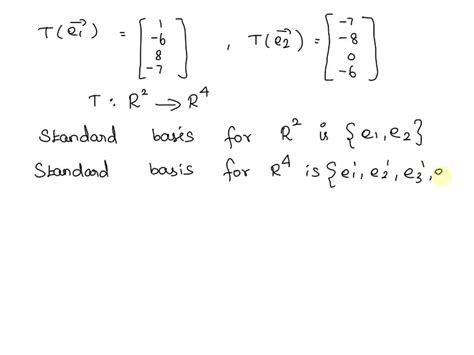 T(e₁⃗) = [1 -6 8 -7] , T(e₂⃗) = [-7 -8 0 -6]
T : R² → R⁴
Standard basis for R² is {e₁, e₂}
Standard basis for R⁴ is {e₁', e₂', e₃',